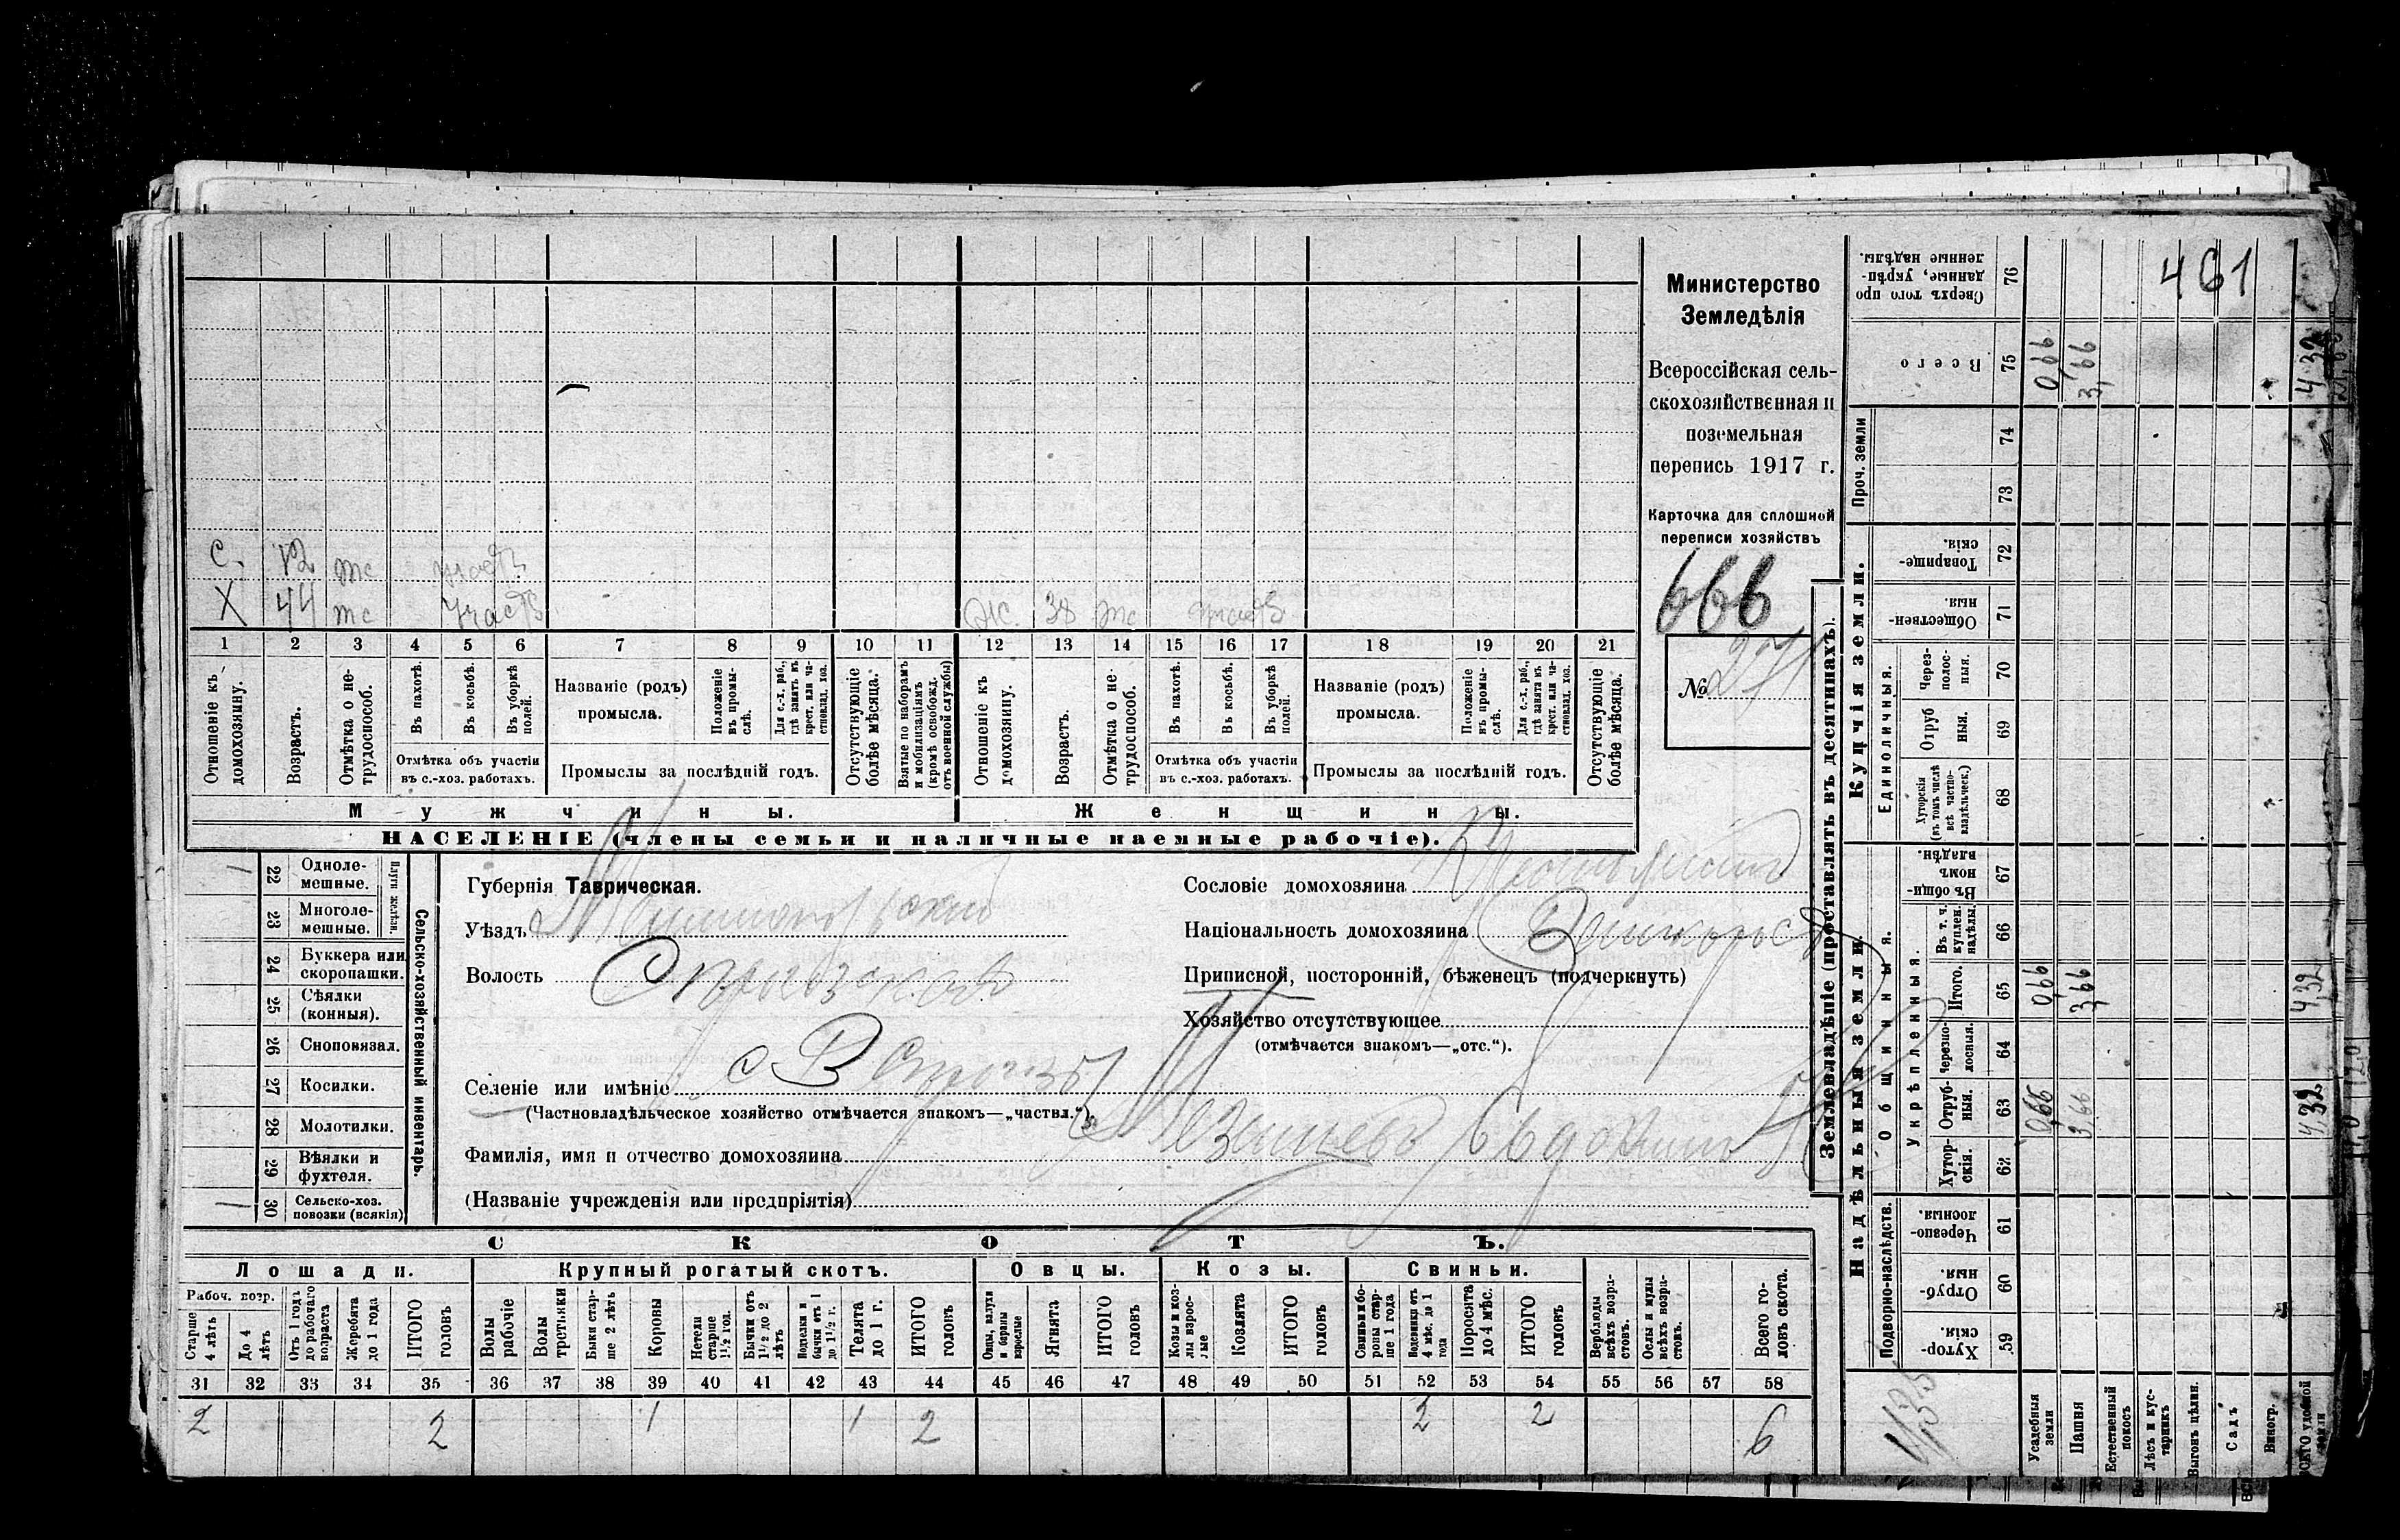 с. 12 тс участв
X 44 тс участв Ж. 38 тс участв
1 2 3 4 5 6 7 8 9 10 11 12 13 14 15 16 17 18 19 20 21
Отношеніе къ домохозяину.
Возрастъ.
Отмѣтка о не-трудоспособ.
Въ пахотѣ.
Въ косьбѣ.
Въ уборкѣ полей.
Отмѣтка объ участіи
въ с.-хоз. работахъ.
Названіе (родъ)
промысла.
Положеніе въ промы-слѣ.
Для с.-х. раб., гдѣ занятъ въ крест. или ча-стновлад. хоз.
Промыслы за послѣдній годъ.
Отсутствующіе болѣе мѣсяца.
Взятые по наборамъ и мобилизаціямъ (кромѣ освобожд. отъ военной службы)
Отношеніе къ домохозяину.
Возрастъ.
Отмѣтка о не-трудоспособ.
Въ пахотѣ.
Въ косьбѣ.
Въ уборкѣ полей.
Отмѣтка объ участіи
въ с.-хоз. работахъ.
Названіе (родъ)
промысла.
Положеніе въ промы-слѣ.
Для с.-х. раб., гдѣ занята въ крест. или ча-стновлад. хоз.
Промыслы за послѣдній годъ.
Отсутствующіе болѣе мѣсяца.
Мужчины. Женщины.
НАСЕЛЕНІЕ (члены семьи и наличные наемные рабочіе).
Министерство
Земледѣлія
Всероссійская сель-
скохозяйственная и
поземельная
перепись 1917 г.
Карточка для сплошной
переписи хозяйствъ
666
№ 271
1 22 Одноле-мешные.
23 Многоле-мешные.
Плуги желѣзн.
24 Буккера или скоропашки.
25 Сѣялки (конныя).
26 Сноповязал.
27 Косилки.
28 Молотилки.
29 Вѣялки и фухтеля.
1 30 Сельско-хоз. повозки (всякія)
Сельско-хозяйственный инвентарь.
Губернія Таврическая.
Уѣздъ
Волость
Селеніе или имѣніе
(Частновладѣльческое хозяйство отмѣчается знакомъ—„частвл.“).
Фамилія, имя и отчество домохозяина
(Названіе учрежденія или предпріятія)
Сословіе домохозяина
Національность домохозяина
Приписной, посторонній, бѣженецъ (подчеркнуть)
Хозяйство отсутствующее
(отмѣчается знакомъ—„отс.“).
СКОТЪ.
Лошади. Крупный рогатый скотъ. Овцы. Козы. Свиньи.
Рабоч. возр.
Старше 4 лѣтъ
До 4 лѣтъ
Отъ 1 года до рабочаго возраста
Жеребята до 1 года
ИТОГО головъ
Волы рабочіе
Волы третьяки
Быки стар-ше 2 лѣтъ
Коровы
Нетели старше 1½ год.
Бычки отъ 1½ до 2 лѣтъ
Телки и бычки отъ 1 до 1½ г.
Телята до 1 г.
ИТОГО головъ
Овцы, валухи и бараны взрослые
Ягнята
ИТОГО головъ
Козы и коз-лы взрос-лые
Козлята
ИТОГО головъ
Свиньи и бо-ровы стар-ше 1 года
Подсвинки отъ 4 мѣс. до 1 года
Поросята до 4 мѣс.
ИТОГО головъ
Верблюды всѣхъ возра-стовъ.
Ослы и мулы всѣхъ возра-стовъ.
Всего го-ловъ скота.
31 32 33 34 35 36 37 38 39 40 41 42 43 44 45 46 47 48 49 50 51 52 53 54 55 56 57 58
2 2 1 1 2 2 2 6
Землевладѣніе (проставлять въ десятинахъ).
Надѣльныя земли.
Купчія земли.
Проч. земли
Подворно-наслѣдств.
Общинныя.
Укрѣпленныя.
Единоличныя.
Сверхъ того про данные, укрѣп-ленные надѣлы. 76 461
Всего 75 0,66 3,66 4,32
74
73
Товарище-скія. 72
Обществен-ныя 71
Через-полос-ныя. 70
Отруб ныя. 69
Хуторскія (въ томъ числѣ всѣ частно-владѣльческ.) 68
Въ общи-номъ владѣн. 67
Въ т. ч. куплен. надѣлы. 66
Итого. 65 0,66 3,66 4,32
Черезпо-лосныя. 64
Отруб-ныя. 63 0,66 3,66 4,32
Хутор-скія. 62
Черезпо-лосныя. 61
Отруб-ныя. 60
Хутор-скія. 59
Усадебныя земли
Пашня
Естественный покосъ
Лѣсъ и кус-тарникъ
Выгонъ цѣлин.
Садъ
Виногр.